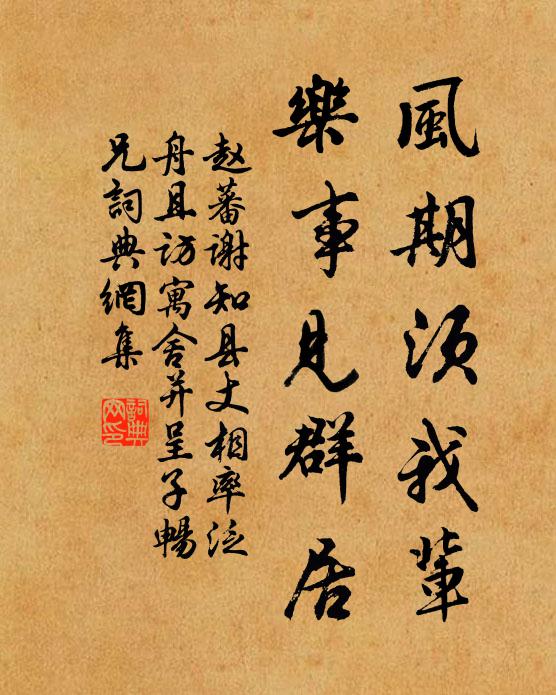 風期須我輩
樂事見群居
赵蕃谢知县丈相率泛
舟且访寓舍并呈子暢
兄詞典網集
詞典
网印